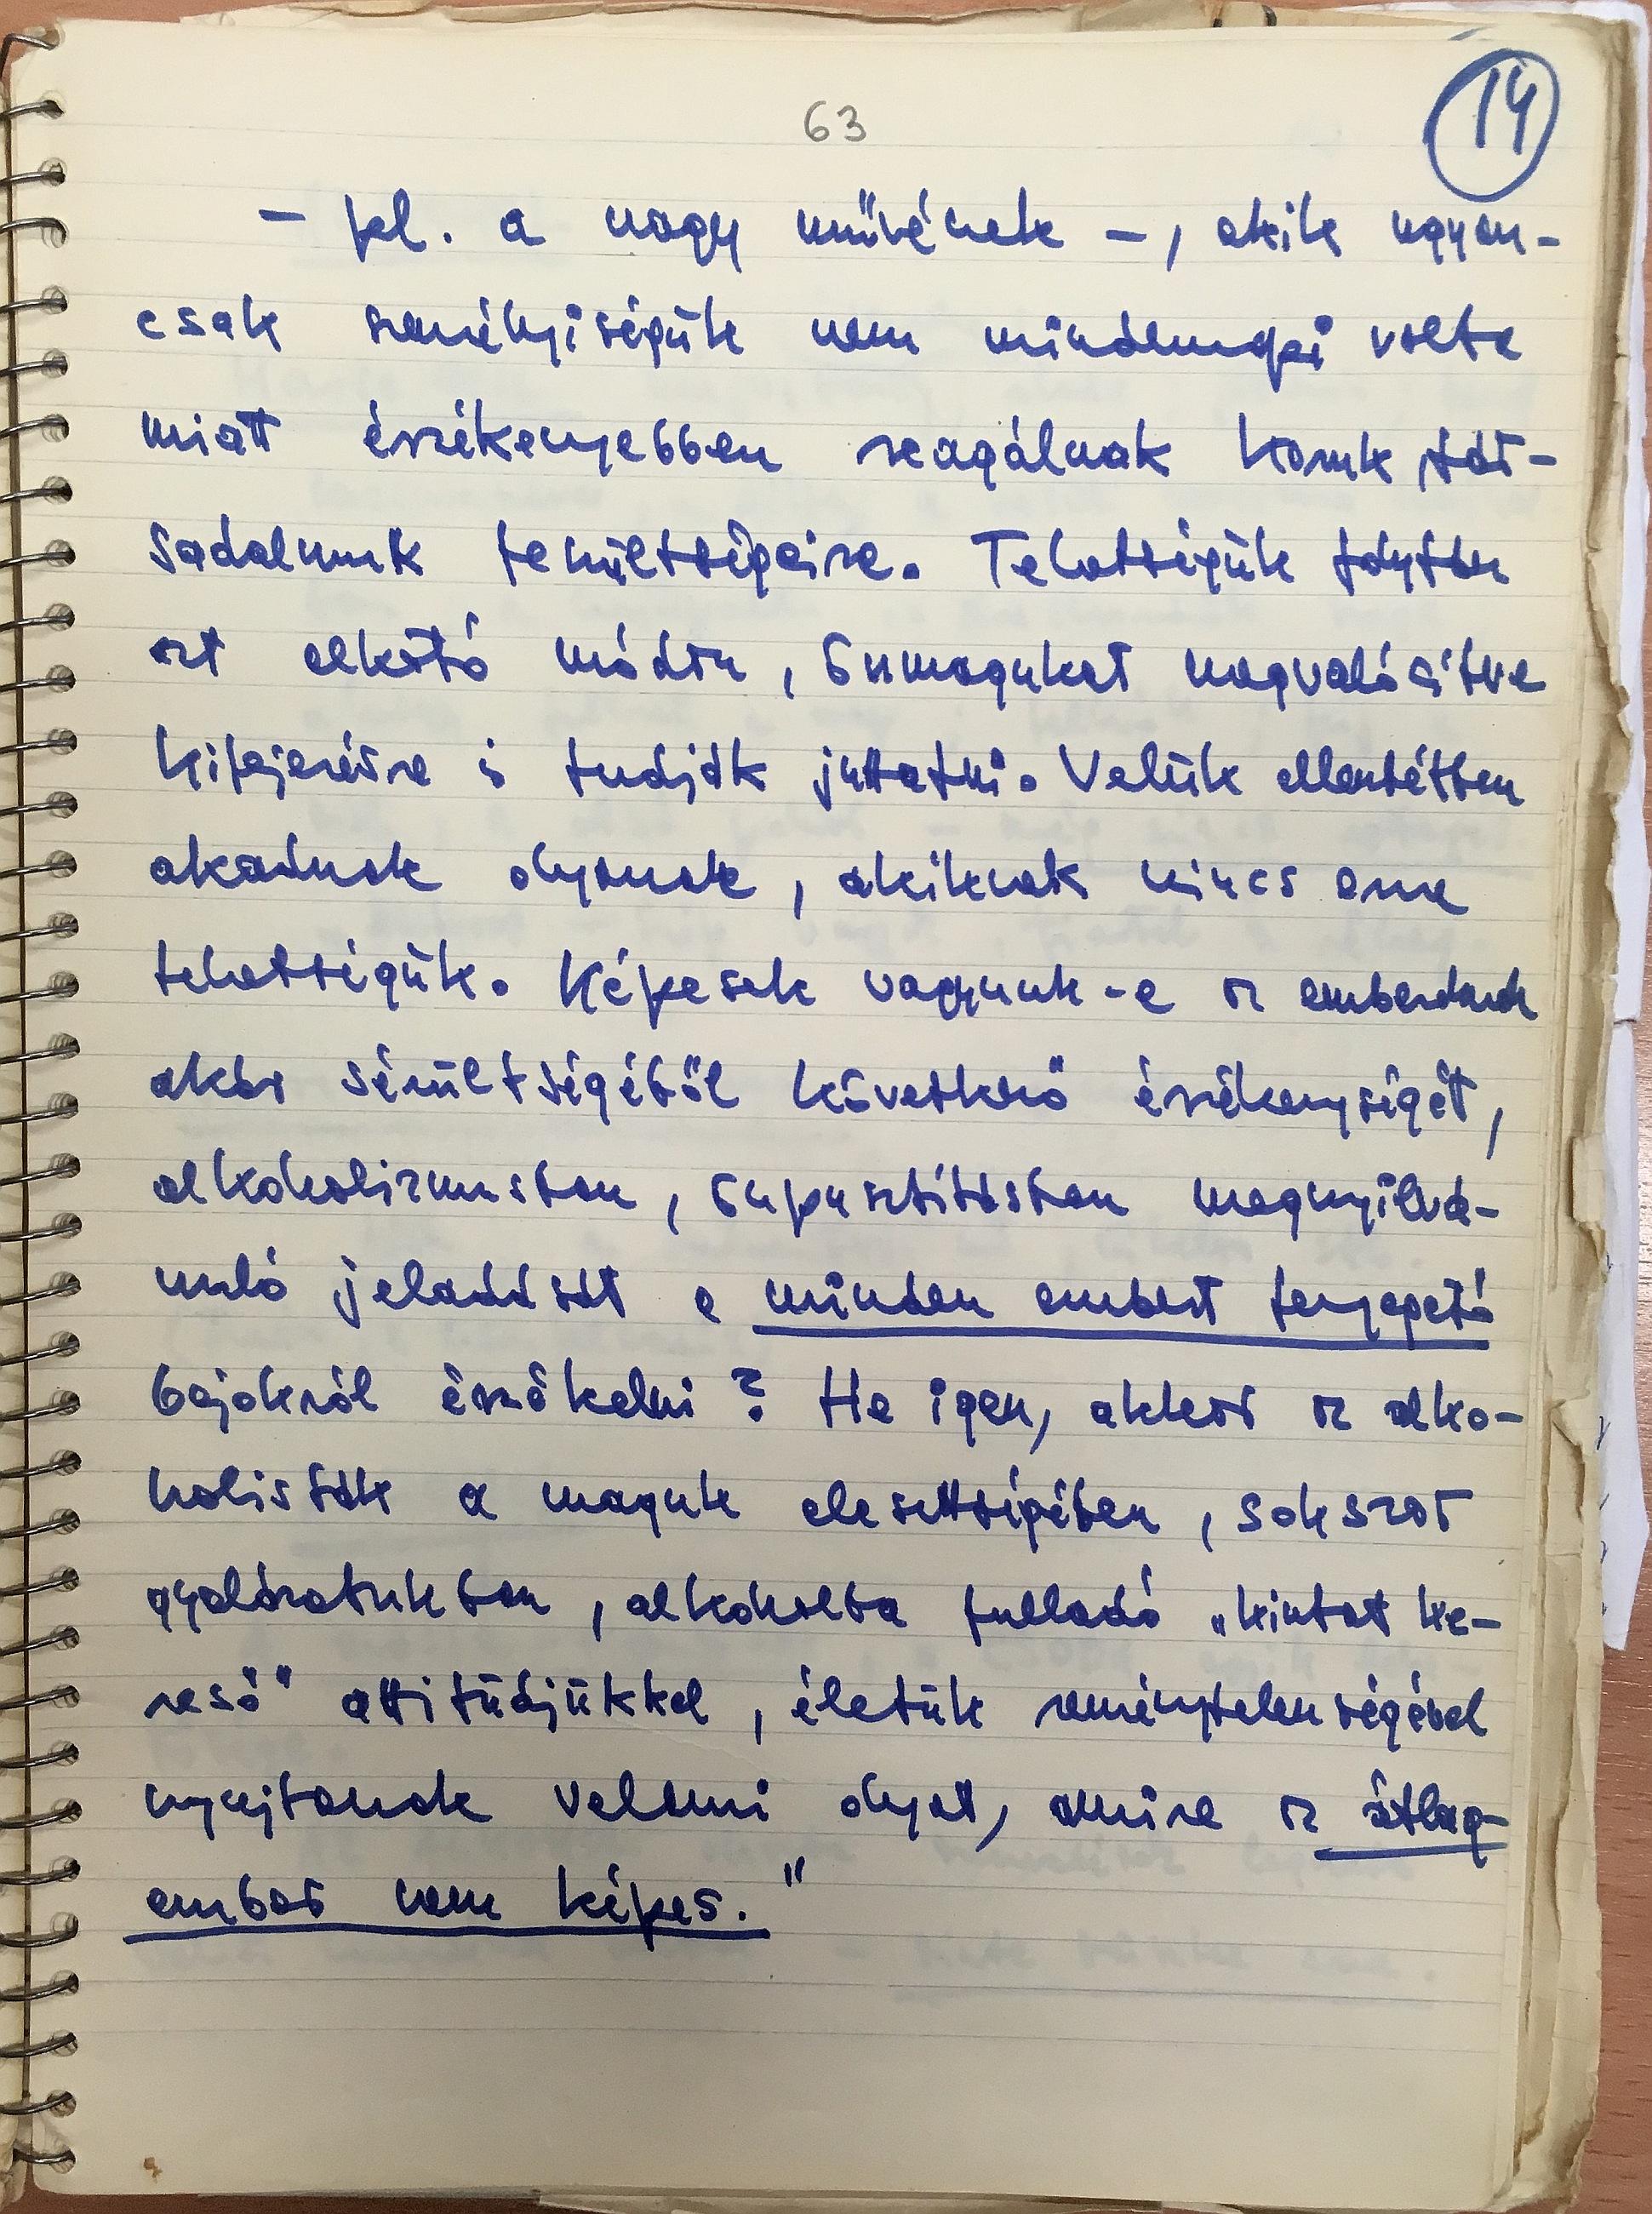 63
14
– pl. a nagy művészek –, akik ugyan-
csak személyiségük nem mindennapi volta
miatt érzékenyebben reagálnak koruk tár-
sadalmunk feszültségeire. Tehetségük folytán
ezt alkotó módon, önmagukat megvalósítva
kifejezésre is tudják juttatni. Velük ellentétben
akadnak olyanok, akiknek nincs erre
tehetségük. Képesek vagyunk-e az embereknek
akár sérültségéből következő érzékenységét,
alkoholizmusban, önpusztításban megnyilvá-
nuló jeladását a minden embert fenyegető
bajokról érzékelni? Ha igen, akkor az alko-
holisták a maguk elesettségében, sokszor
gyalázatukban, alkoholba fulladó „kiutat ke-
reső" attitűdjükkel, életük reménytelenségével
nyújtanak valami olyat, amire az átlag-
ember nem képes."